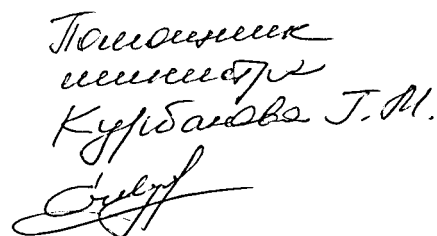 Помощник
министра
Курбанова Г.М.